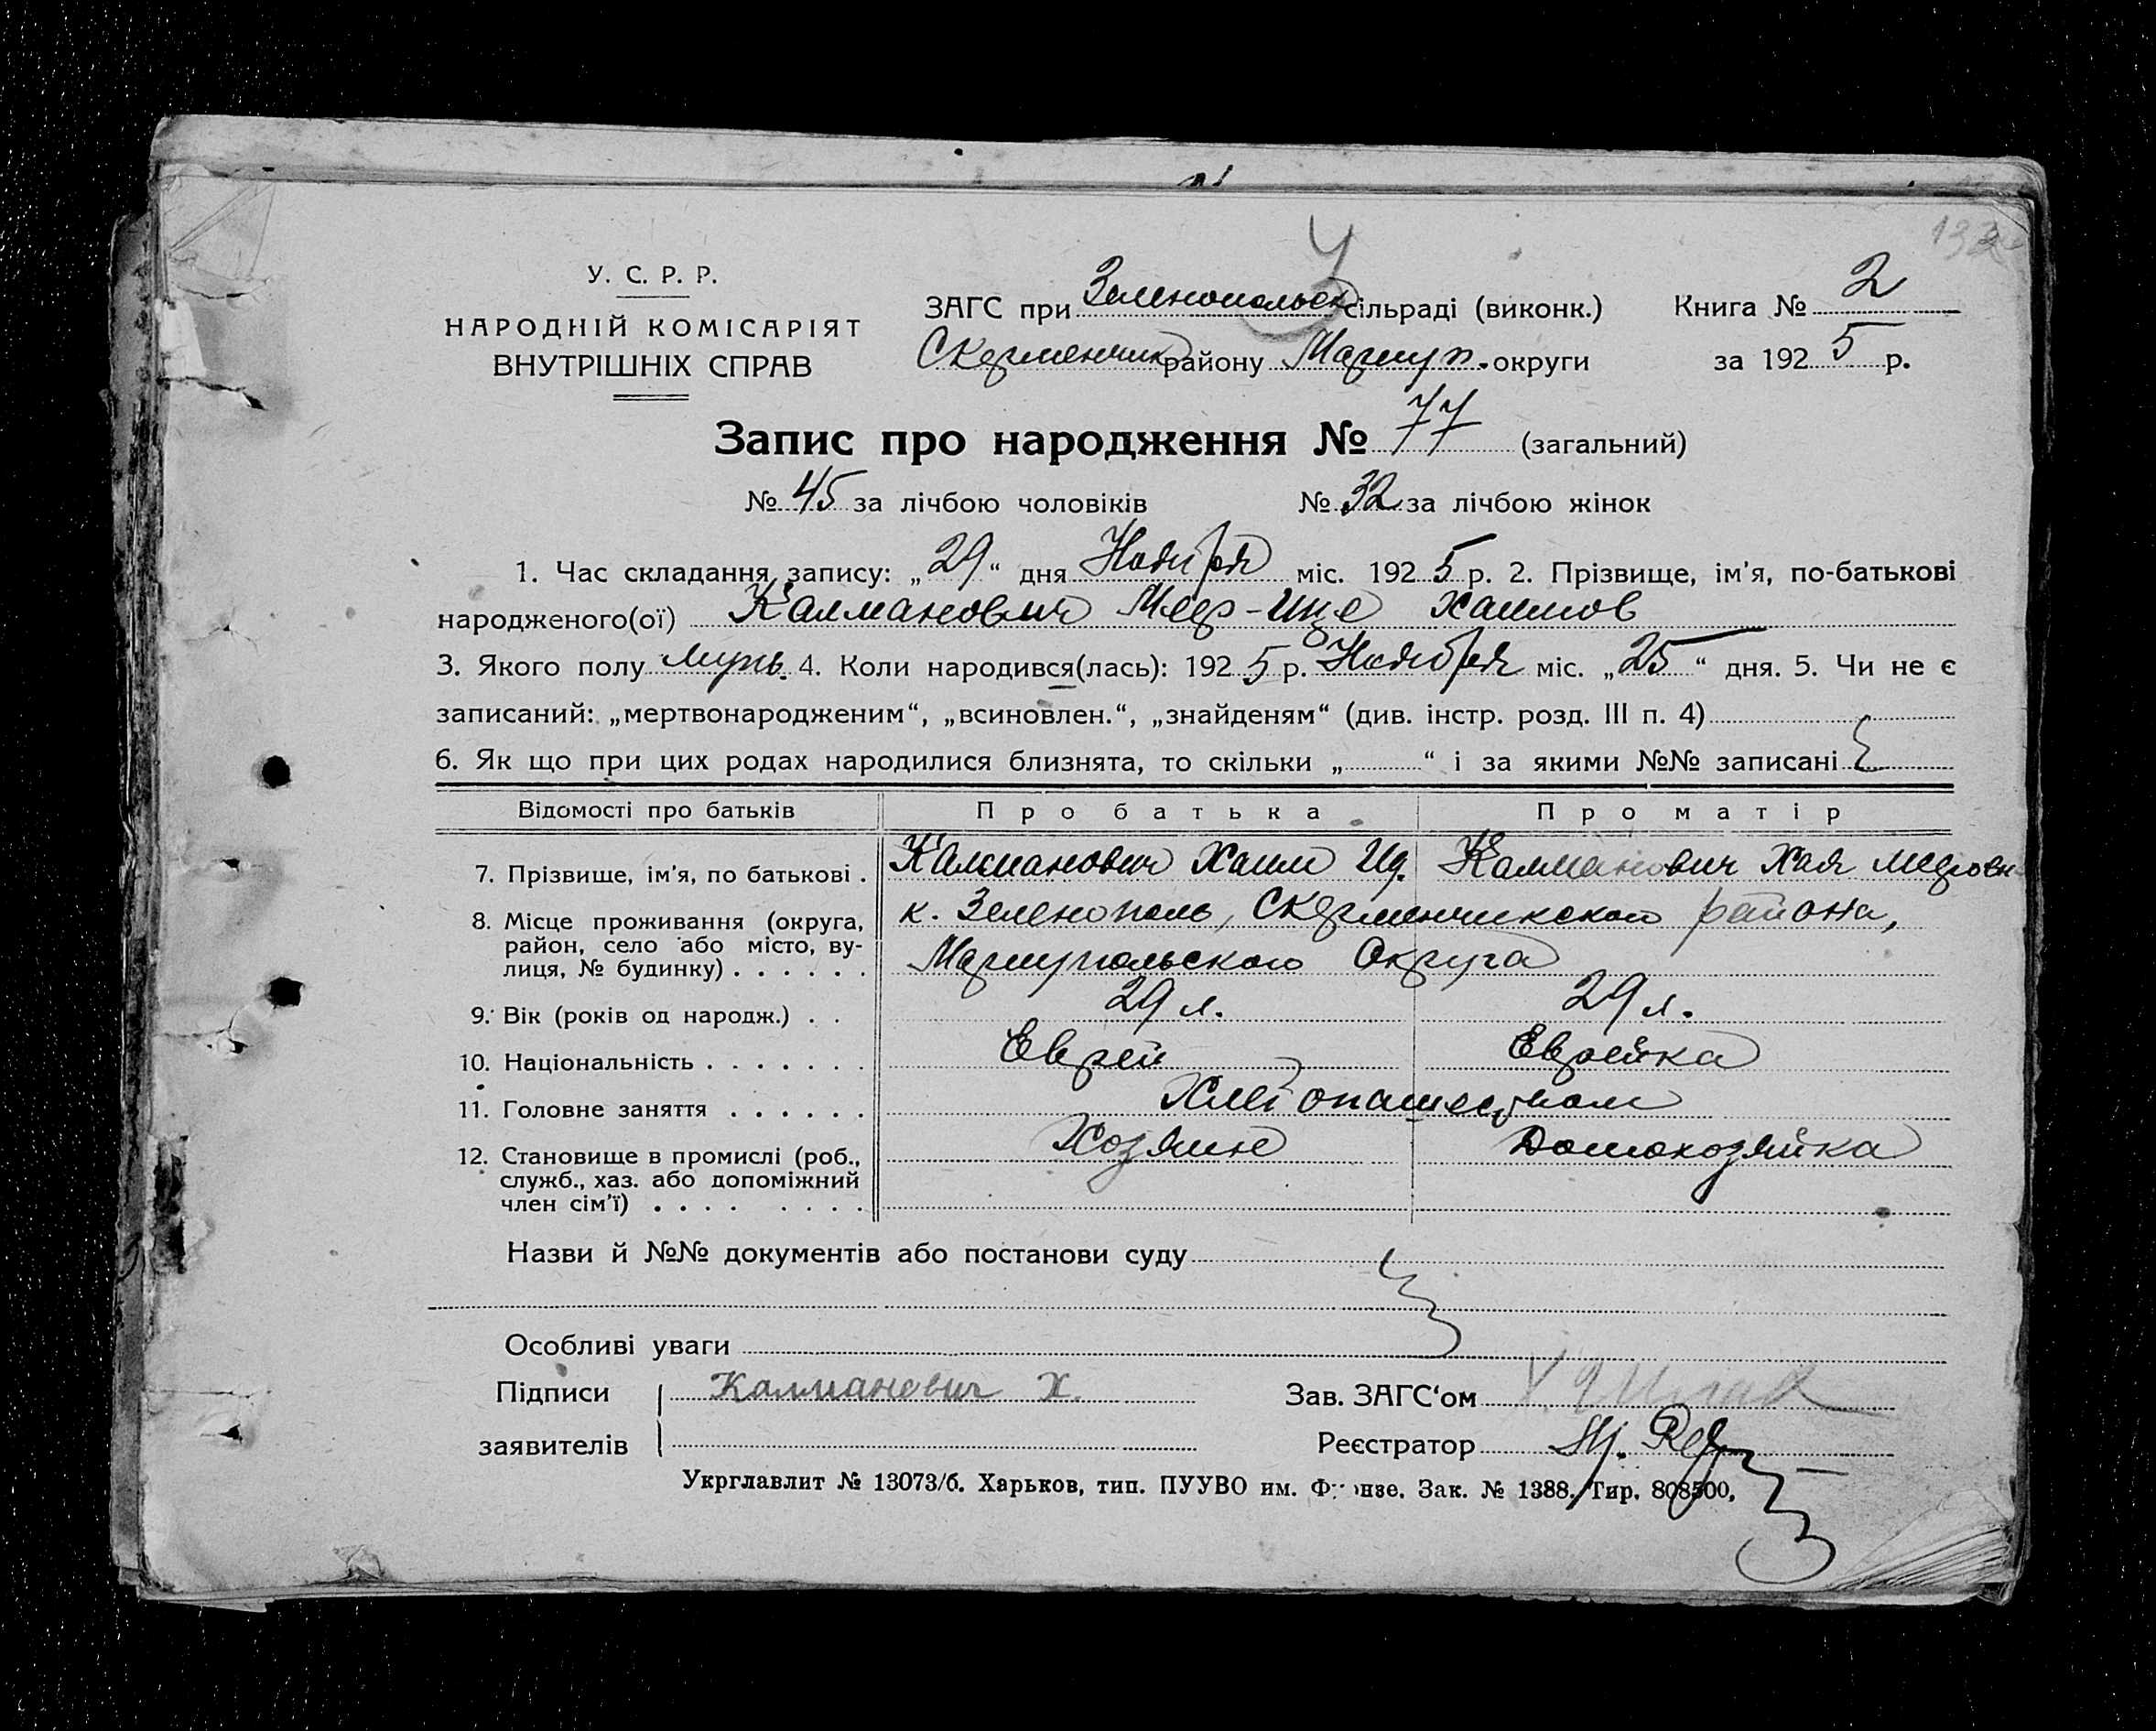 У. С. Р. Р.
НАРОДНІЙ КОМІСАРІЯТ
ВНУТРІШНІХ СПРАВ
ЗАГС при Зеленопольск сільраді (виконк.) Книга № 2
Скерменчик району Мариуп. округи за 192 5 р.
Запис про народження № 77 (загальний)
№ 45 за лічбою чоловіків № 32 за лічбою жінок
1. Час складання запису: „ 29 “ дня Ноября міс. 192 5 р. 2. Прізвище, ім'я, по-батькові
народженого(ої) Калманович Меер-Ице Хаимов
3. Якого полу мужь. 4. Коли народився(лась): 192 5 р. Ноября міс. „ 25 “ дня. 5. Чи не є
записаний: „мертвонародженим“, „всиновлен.“, „знайденям“ (див. інстр. розд. III п. 4)
6. Як що при цих родах народилися близнята, то скільки „ “ і за якими №№ записані
Відомості про батьків Про батька Про матір
7. Прізвище, ім'я, по батькові . Калманович Хаим Ид. Калманович Хая Меровн
8. Місце проживання (округа, к. Зеленополь, Скерменчикского района,
район, село або місто, ву-
лиця, № будинку) . . . . . . Мариупольского Округа
9. Вік (років од народж.) . . 29 л. 29 л.
10. Національність . . . . . . . Еврей Еврейка
11. Головне заняття . . . . . . Хлебопашеством
12. Становище в промислі (роб., Хозяин Домохозяйка
служб., хаз. або допоміжний
член сім'ї) . . . . . . . .
Назви й №№ документів або постанови суду
Особливі уваги
Підписи Калманович Х. Зав. ЗАГС'ом
заявителів Реєстратор
Укрглавлит № 13073/б. Харьков, тип. ПУУВО им. Фрунзе. Зак. № 1388. Тир. 808500.